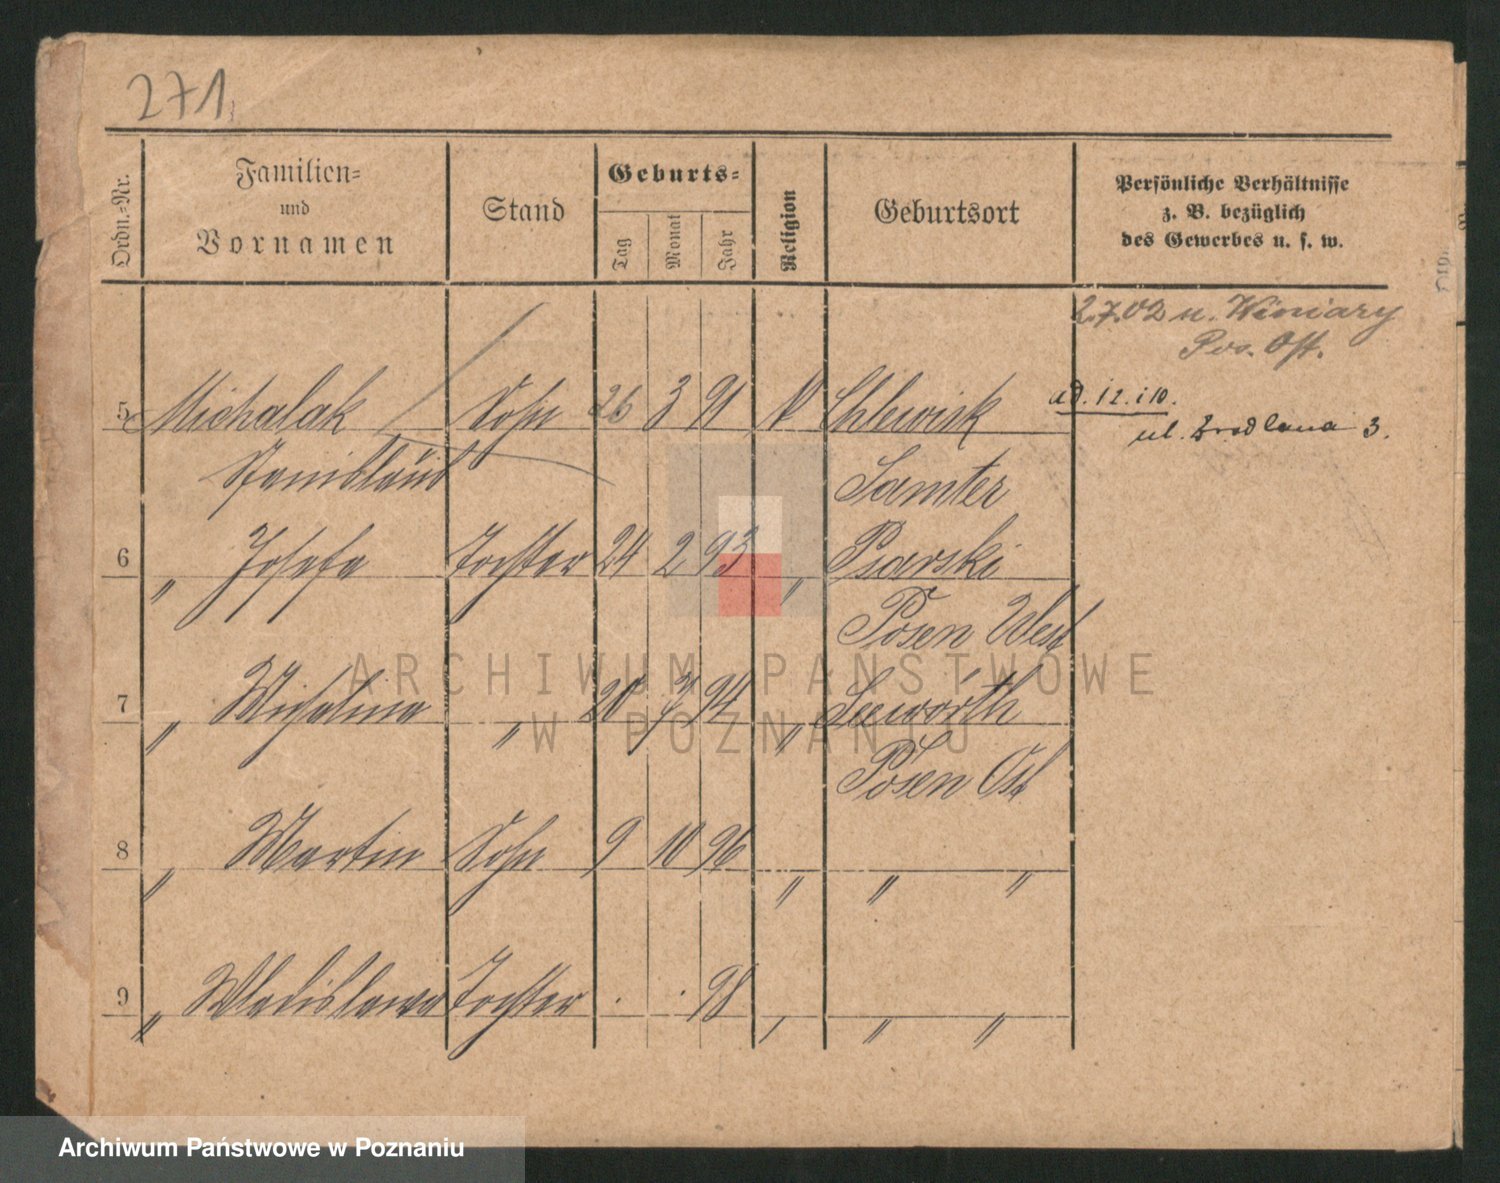 271
Ordn.-Nr.
Familien-
und
Vornamen
Stand
Geburts-
Tag
Monat
Jahr
Religion
Geburtsort
Persönliche Verhältnisse
z. B. bezüglich
des Gewerbes u. s. w.
2.7.02 n. Winiary
Pos. Ost.
5 Michalak Sohn 26 3 91 k
ad. 12. i 10.
ul. 3.
Stanislaus Samter
6 " Josefa Tochter 24 2 93 " Psarski
Posen West
7 " Michalina " 20 94 "
Posen Ost
8 " Martin Sohn 9 10 96 " " "
9 " Wladislawa Tochter . . 98 " " "
ARCHIWUM PAŃSTWOWE
W POZNANIU
Archiwum Państwowe w Poznaniu